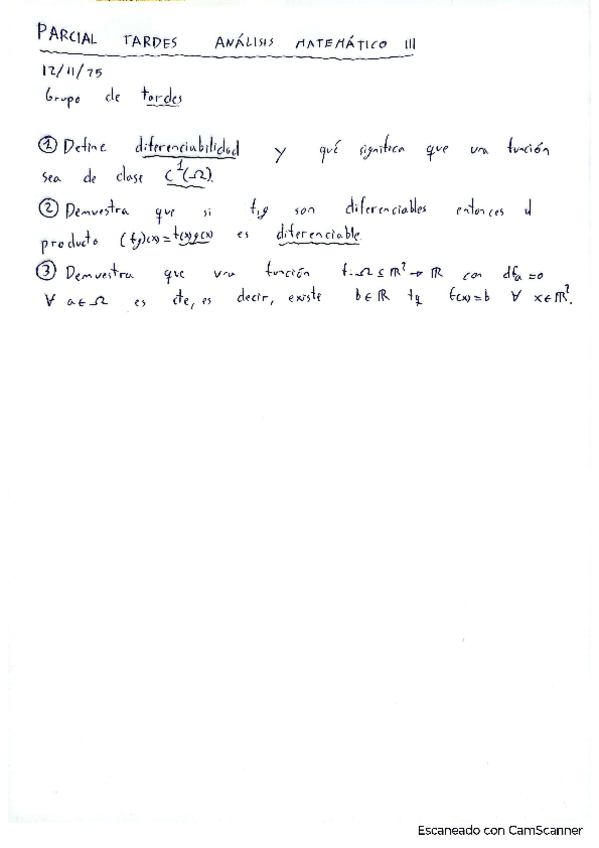 PARCIAL TARDES ANÁLISIS MATEMÁTICO III
12/11/25
Grupo de tardes
① Define diferenciabilidad y qué significa que una función
sea de clase C¹(Ω).
② Demuestra que si f,g son diferenciables entonces el
producto (fg)(x)=f(x)g(x) es diferenciable.
③ Demuestra que una función f:Ω⊆ℝ²→ℝ con dfₐ=0
∀ a∈Ω es cte, es decir, existe b∈ℝ tq f(x)=b ∀ x∈ℝ².
Escaneado con CamScanner